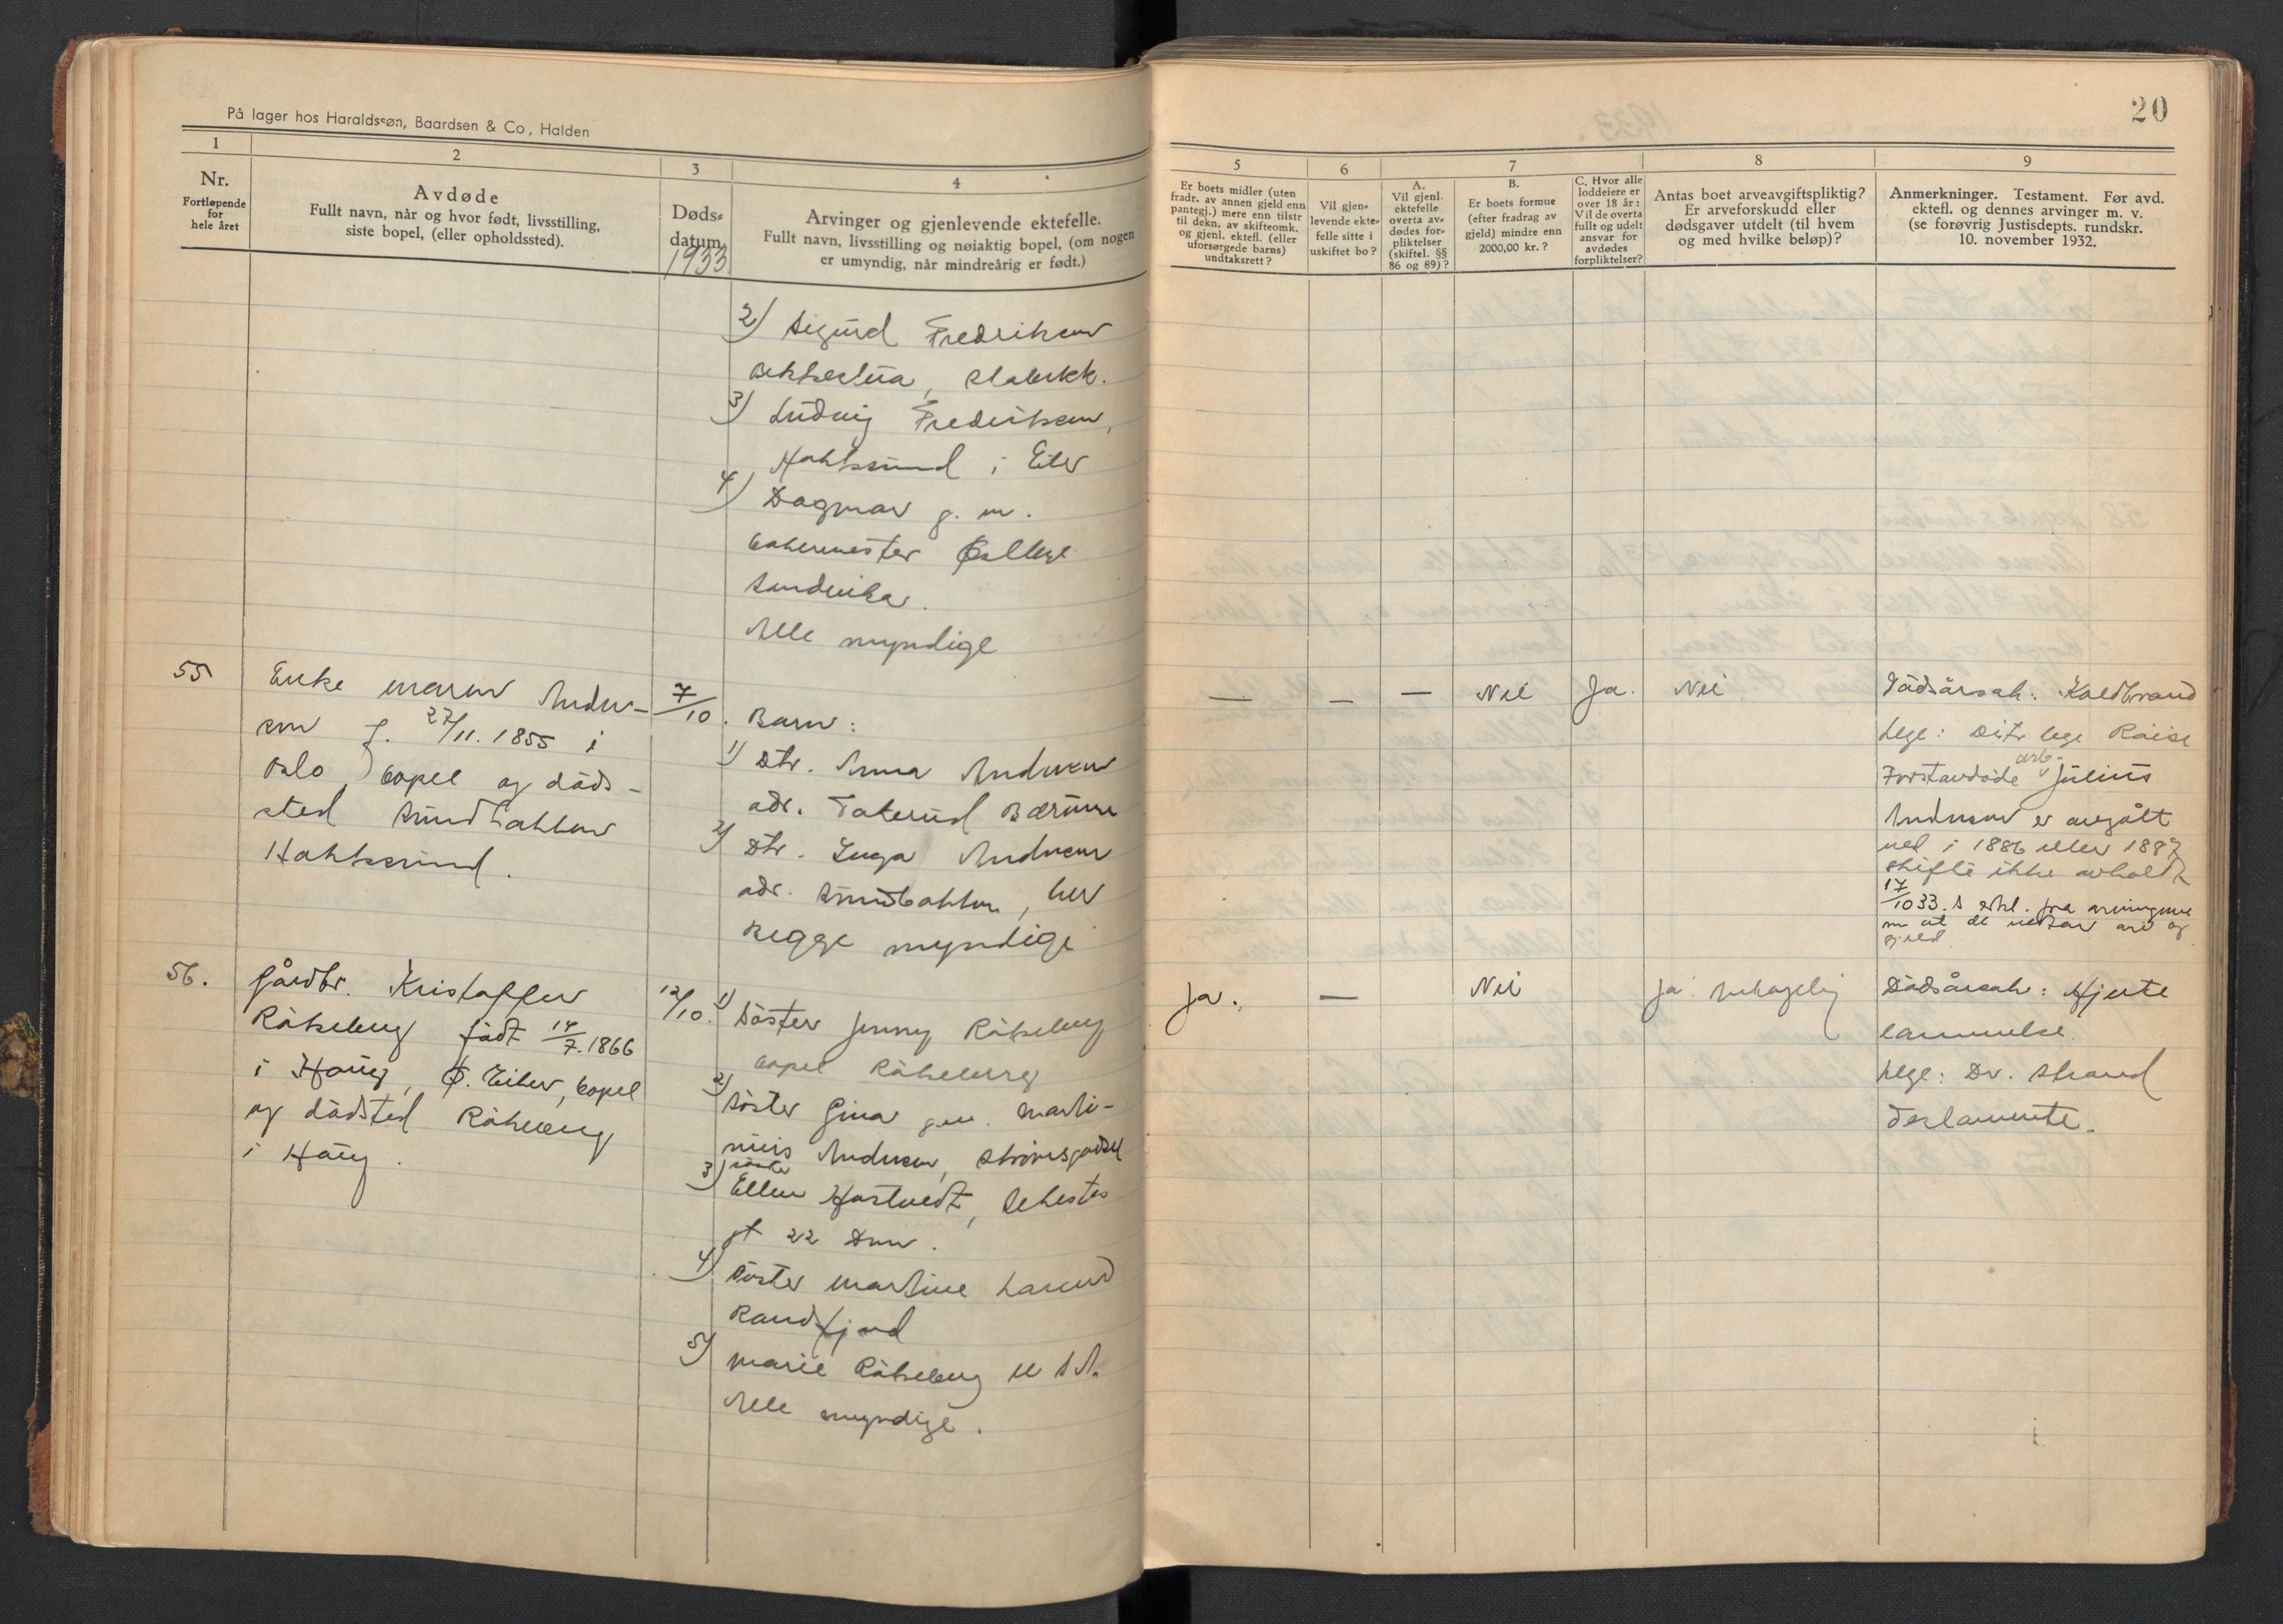 På lager hos Haraldssøn, Baardsen & Co, Halden
1
2
3
4
Nr.
Fortløpende
for
hele året
Avdøde
Fullt navn, når og hvor født, livsstilling,
siste bopel, (eller opholdssted).
Døds-
datum
1933
Arvinger og gjenlevende ektefelle.
Fullt navn, livsstilling og nøiaktig bopel, (om nogen
er umyndig, når mindreårig er født.)
2) Sigurd Fredriksen
Bekkestua, Stabekk.
3) Ludvig Fredriksen,
Hokksund i Eiker
4) Dagmar g. m.
bakermester
Sandvika.
Alle myndige
55
Enke Maren Ander-
sen f. 27/11. 1855 i
Oslo, bopel og døds-
sted Sundbakken
Hokksund.
7/10.
Barn:
1) Dtr. Anna Andersen
adr. Tokerud Bærum
2) Dtr. Inga Andersen
adr. Sundbakken, her
Begge myndige
56.
Gårdbr. Kristoffer
Røkeberg født 14/7. 1866
i Haug, Ø. Eiker, bopel
og dødsted Røkeberg
i Haug.
12/10.
1) Søster Jenny Røkeberg
bopel Røkeberg
2) Søster Gina gm. Marti-
nius Andersen, Strømsgodset
3) søster
Ellen Hostvedt,
gt 22 Dmn.
4) Søster Martine Larsen
Randsfjord
5) Marie Røkeberg U S A.
Alle myndige.
20
5
6
7
8
9
Er boets midler (uten
fradr. av annen gjeld enn
pantegj.) mere enn tilstr
til dekn. av skifteomk.
og gjenl. ektefl. (eller
uforsørgede barns)
undtaksrett?
Vil gjen-
levende ekte-
felle sitte i
uskiftet bo?
A.
Vil gjenl.
ektefelle
overta av-
dødes for-
pliktelser
(skiftel. §§
86 og 89)?
B.
Er boets formue
(efter fradrag av
gjeld) mindre enn
2000,00 kr.?
C. Hvor alle
loddeiere er
over 18 år:
Vil de overta
fullt og udelt
ansvar for
avdødes
forpliktelser?
Antas boet arveavgiftspliktig?
Er arveforskudd eller
dødsgaver utdelt (til hvem
og med hvilke beløp)?
Anmerkninger. Testament. Før avd.
ektefl. og dennes arvinger m. v.
(se forøvrig Justisdepts. rundskr.
10. november 1932.
— — — Nei Ja. Nei
Dødsårsak: Koldbrand
Lege: Distr lege Roise
arb.
Førstavdøde Julius
Andersen er avgått
ved i 1886 eller 1887
skifte ikke avholdt
17/10 33. S erkl. fra arvingene
om at de vedtar arv og
gjeld.
Ja. — Nei Ja.
Dødsårsak: Hjerte
lammelse.
Lege: Dr. Strand